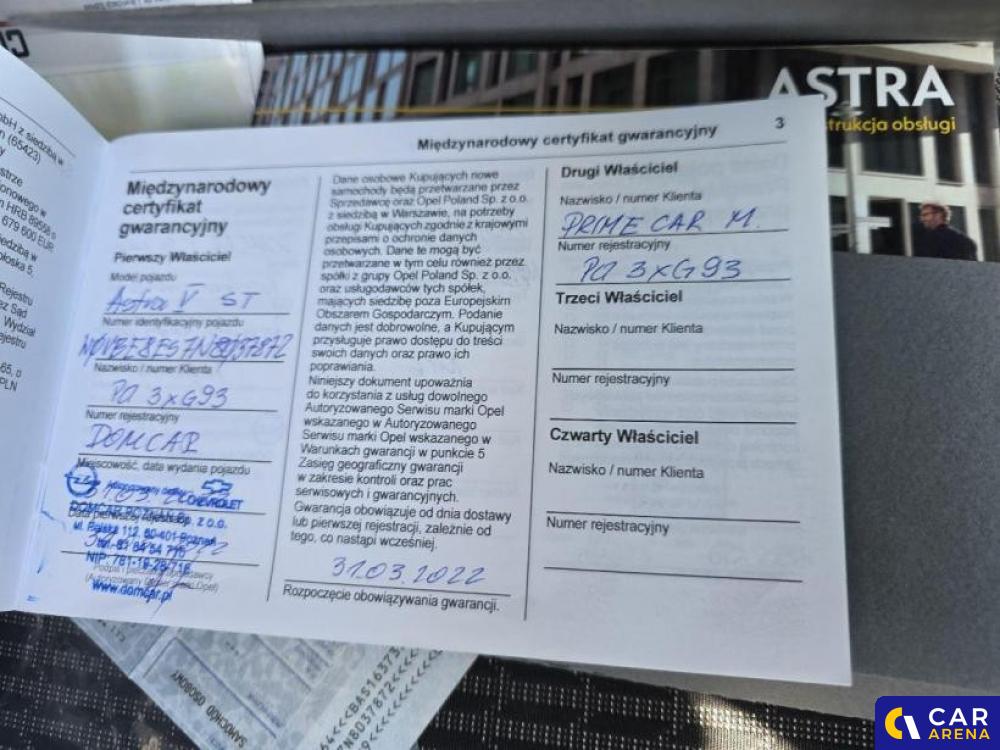 ASTRA
instrukcja obsługi
bH z siedzibą w
(65423)
HRB 89558 o
679 600 EUR
PLN
Międzynarodowy certyfikat gwarancyjny
3
Międzynarodowy
certyfikat
gwarancyjny
Pierwszy Właściciel
Model pojazdu
Astra V ST
Numer identyfikacyjny pojazdu
Nazwisko / numer Klienta
PO 3XG93
Numer rejestracyjny
DOMCAR
Miejscowość, data wydania pojazdu
CHEVROLET
ul. 112, 60-401 Poznań
(Autoryzowany
www.domcar.pl
Dane osobowe Kupujących nowe
samochody będą przetwarzane przez
Sprzedawcę oraz Opel Poland Sp. z o.o.
z siedzibą w Warszawie, na potrzeby
obsługi Kupujących zgodnie z krajowymi
przepisami o ochronie danych
osobowych. Dane te mogą być
przetwarzane w tym celu również przez
spółki z grupy Opel Poland Sp. z o.o.
oraz usługodawców tych spółek,
mających siedzibę poza Europejskim
Obszarem Gospodarczym. Podanie
danych jest dobrowolne, a Kupującym
przysługuje prawo dostępu do treści
swoich danych oraz prawo ich
poprawiania.
Niniejszy dokument upoważnia
do korzystania z usług dowolnego
Autoryzowanego Serwisu marki Opel
wskazanego w Autoryzowanego
Serwisu marki Opel wskazanego w
Warunkach gwarancji w punkcie 5
Zasięg geograficzny gwarancji
w zakresie kontroli oraz prac
serwisowych i gwarancyjnych.
Gwarancja obowiązuje od dnia dostawy
lub pierwszej rejestracji, zależnie od
tego, co nastąpi wcześniej.
31.03.2022
Rozpoczęcie obowiązywania gwarancji.
Drugi Właściciel
Nazwisko / numer Klienta
PRIME CAR M.
Numer rejestracyjny
PO 3XG93
Trzeci Właściciel
Nazwisko / numer Klienta
Numer rejestracyjny
Czwarty Właściciel
Nazwisko / numer Klienta
Numer rejestracyjny
SAMOCHÓD OSOBOWY
CAR
ARENA